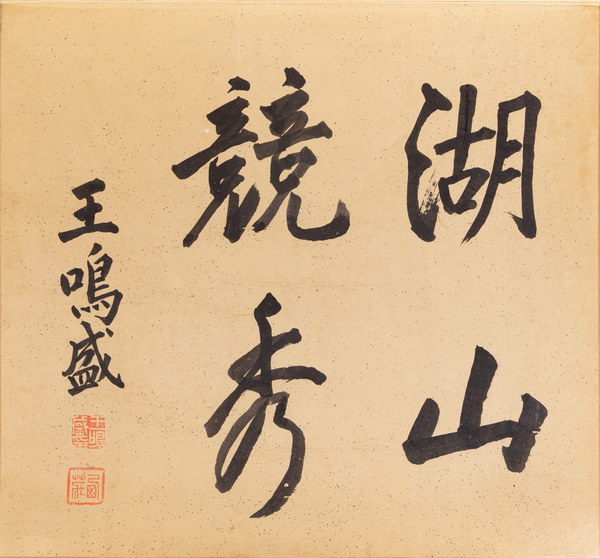 湖山
競秀
王鳴盛